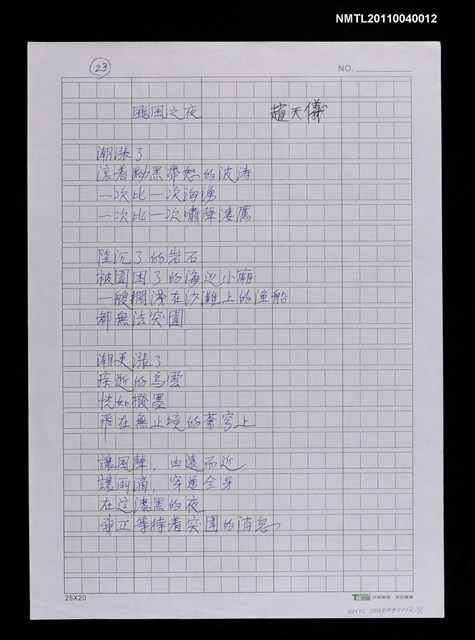 NMTL20110040012
23
NO.
颱風之夜 趙天儀
潮漲了
滾著黝黑帶怒的波濤
一次比一次洶湧
一次比一次嘯聲淒厲
陸沉了的岩石
被圍困了的海边小廟
一艘擱淺在沙灘上的漁船
都無法突圍
潮更漲了
疾逝的烏雲
恍如撥墨
飛在無止境的蒼穹上
讓風聲,由遠而近
讓雨滴,穿透全身
在這漆黑的夜
我正等待着突圍的消息
25X20
NMTL 20110040012